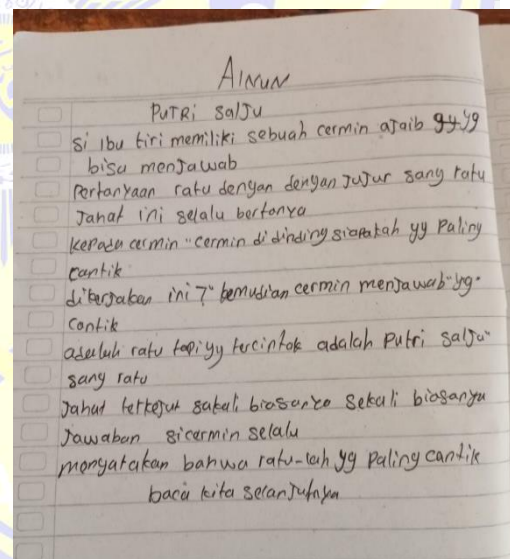 AINUN
PUTRi SalJu
Si Ibu tiri memiliki sebuah cermin aJaib yg
bisa menJawab
Pertanyaan ratu dengan dengan JuJur sang ratu
Jahat ini selalu bertanya
kepada cermin "cermin di dinding siapakah yg Paling
cantik
dikerJaban ini?" kemudian cermin menJawab "yg
Cantik
adalah ratu tapi yg tercintok adalah Putri SalJu"
sang ratu
Jahat terkeJut sakali biasanya Sekali biasanya
Jawaban sicermin selalu
menyatakan bahwa ratu-lah yg Paling cantik
baca kita selanJutnya